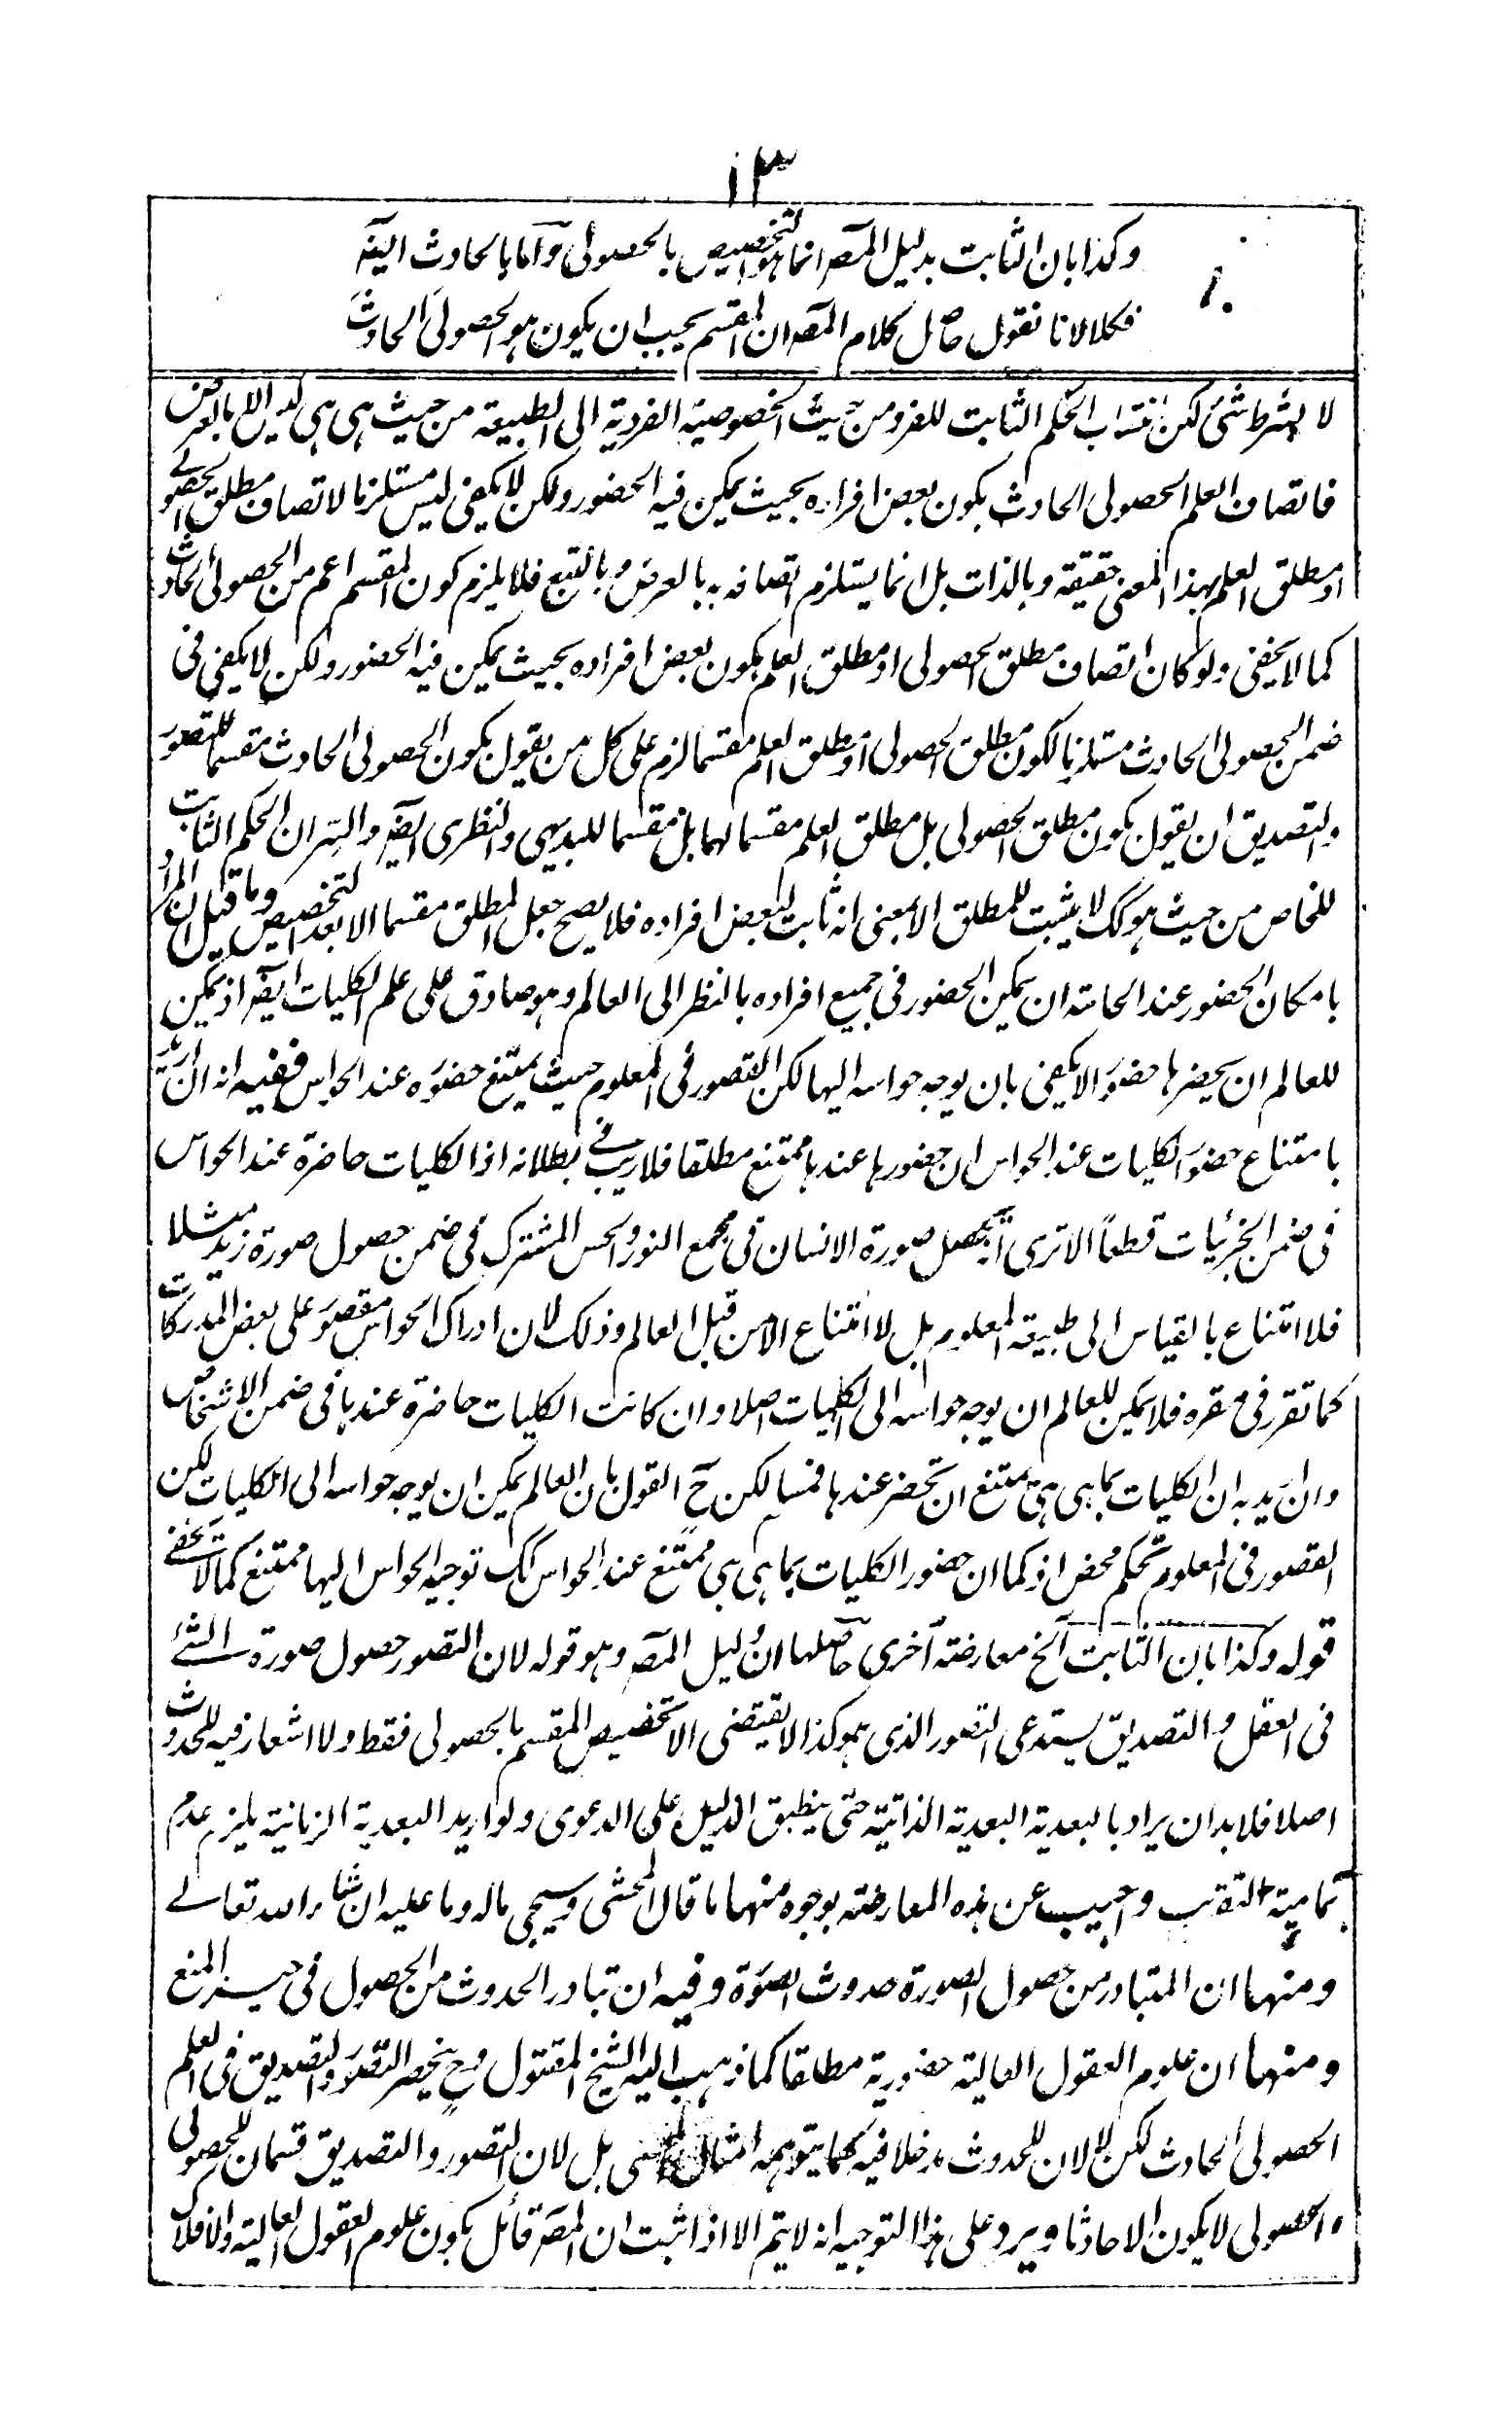 ١٣
وكذا بان الثابت بدليل المصه انما هو التخصيص بالحصولى وآما بالحادث ايضه
فكلا لانا نقول حاصل كلام المصه ان المقسم يجب ان يكون هو الحصولى الحادث
لا بشرط شئ لكن انتساب الحكم الثابت للفرد من حيث الخصوصية الفردية الى الطبيعة من حيث هى هى ليس الا بالعرض
فاتصاف العلم الحصولى الحادث بكون بعض افراده بحيث يمكن فيه الحضور ولكن لا يكفى ليس مستلزما لاتصاف مطلق الحصولے
او مطلق العلم بهذا المعنى حقيقة وبالذات بل انما يستلزم اتصافه به بالعرض وبالتبع فلا يلزم كون المقسم اعم من الحصولى الحادث
كما لا يخفى ولو كان اتصاف مطلق الحصولى او مطلق العلم بكون بعض افراده بحيث يمكن فيه الحضور ولكن لا يكفى فى
ضمن الحصولى الحادث مستلزما لكون مطلق الحصولى او مطلق العلم مقسما لزم على كل من يقول بكون الحصولى الحادث مقسما للتصور
والتصديق ان يقول بكون مطلق الحصولى بل مطلق العلم مقسما لهما بل مقسما للبديهى والنظرى ايضه والسر ان الحكم الثابت
للخاص من حيث هو كك لا يثبت للمطلق الا بمعنى انه ثابت لبعض افراده فلا يصح جعل المطلق مقسما الا بعد التخصيص وما قيل ان المراد
بامكان الحضور عند الحاسة ان يمكن الحضور فى جميع افراده بالنظر الى العالم وهو صادق على علم الكليات ايضه اذ يمكن
للعالم ان يحضرها حضورا لا يكفى بان يوجه حواسه اليها لكن القصور فى المعلوم حيث يمتنع حضوره عند الحواس ففيه انه ان اريد
بامتناع حضور الكليات عند الحواس ان حضورها عندها ممتنع مطلقا فلا ريب فى بطلانه اذ الكليات حاضرة عند الحواس
فى ضمن الجزئيات قطعاً الا ترى انه يحصل صورة الانسان فى مجمع النور والحس المشترك فى ضمن حصول صورة زيد مثلا
فلا امتناع بالقياس الى طبيعة المعلوم بل لا امتناع الا من قبل العالم وذلك لان ادراك الحواس مقصور على بعض المدركات
كما تقرر فى مقره فلا يمكن للعالم ان يوجه حواسه الى الكليات اصلا وان كانت الكليات حاضرة عندها فى ضمن الاشخاص
وان اريد به ان الكليات بما هى هى يمتنع ان تحضر عندها فمسلم لكن ح القول بان العالم يمكن ان يوجه حواسه الى الكليات لكن
القصور فى المعلوم تحكم محض اذ كما ان حضور الكليات بما هى هى ممتنع عند الحواس كك توجيه الحواس اليها ممتنع كما لا يخفے
قوله وكذا بان الثابت آلخ معارضة آخرى حاصلها ان دليل المصه وهو قوله لان التصور حصول صورة الشئے
فى العقل والتصديق يستدعى التصور الذى هو كذا لا يقتضى الا تخصيص المقسم بالحصولى فقط ولا اشعار فيه للحدوث
اصلا فلا بد ان يراد بالبعدية البعدية الذاتية حتى ينطبق الدليل على الدعوى ولو اريد البعدية الزمانية يلزم عدم
تمامية التقريب واجيب عن هذه المعارضة بوجوه منها ما قال المحشى وسيجئ ماله وما عليه ان شاء الله تعالے
ومنها ان المتبادر من حصول الصورة حدوث الصورة وفيه ان تبادر الحدوث من الحصول فى حيز المنع
ومنها ان علوم العقول العالية حضورية مطلقا كما ذهب اليه الشيخ المقتول وح ينحصر التصور والتصديق فى العلم
الحصولى الحادث لكن لا لان للحدوث مدخلا فيه كما يتوهمه امثال المحشى بل لان التصور والتصديق قسمان للحصولى
والحصولى لا يكون الا حادثا ويرد على هذا التوجيه انه لا يتم الا اذا ثبت ان المصه قائل بكون علوم العقول العالية والافلاك